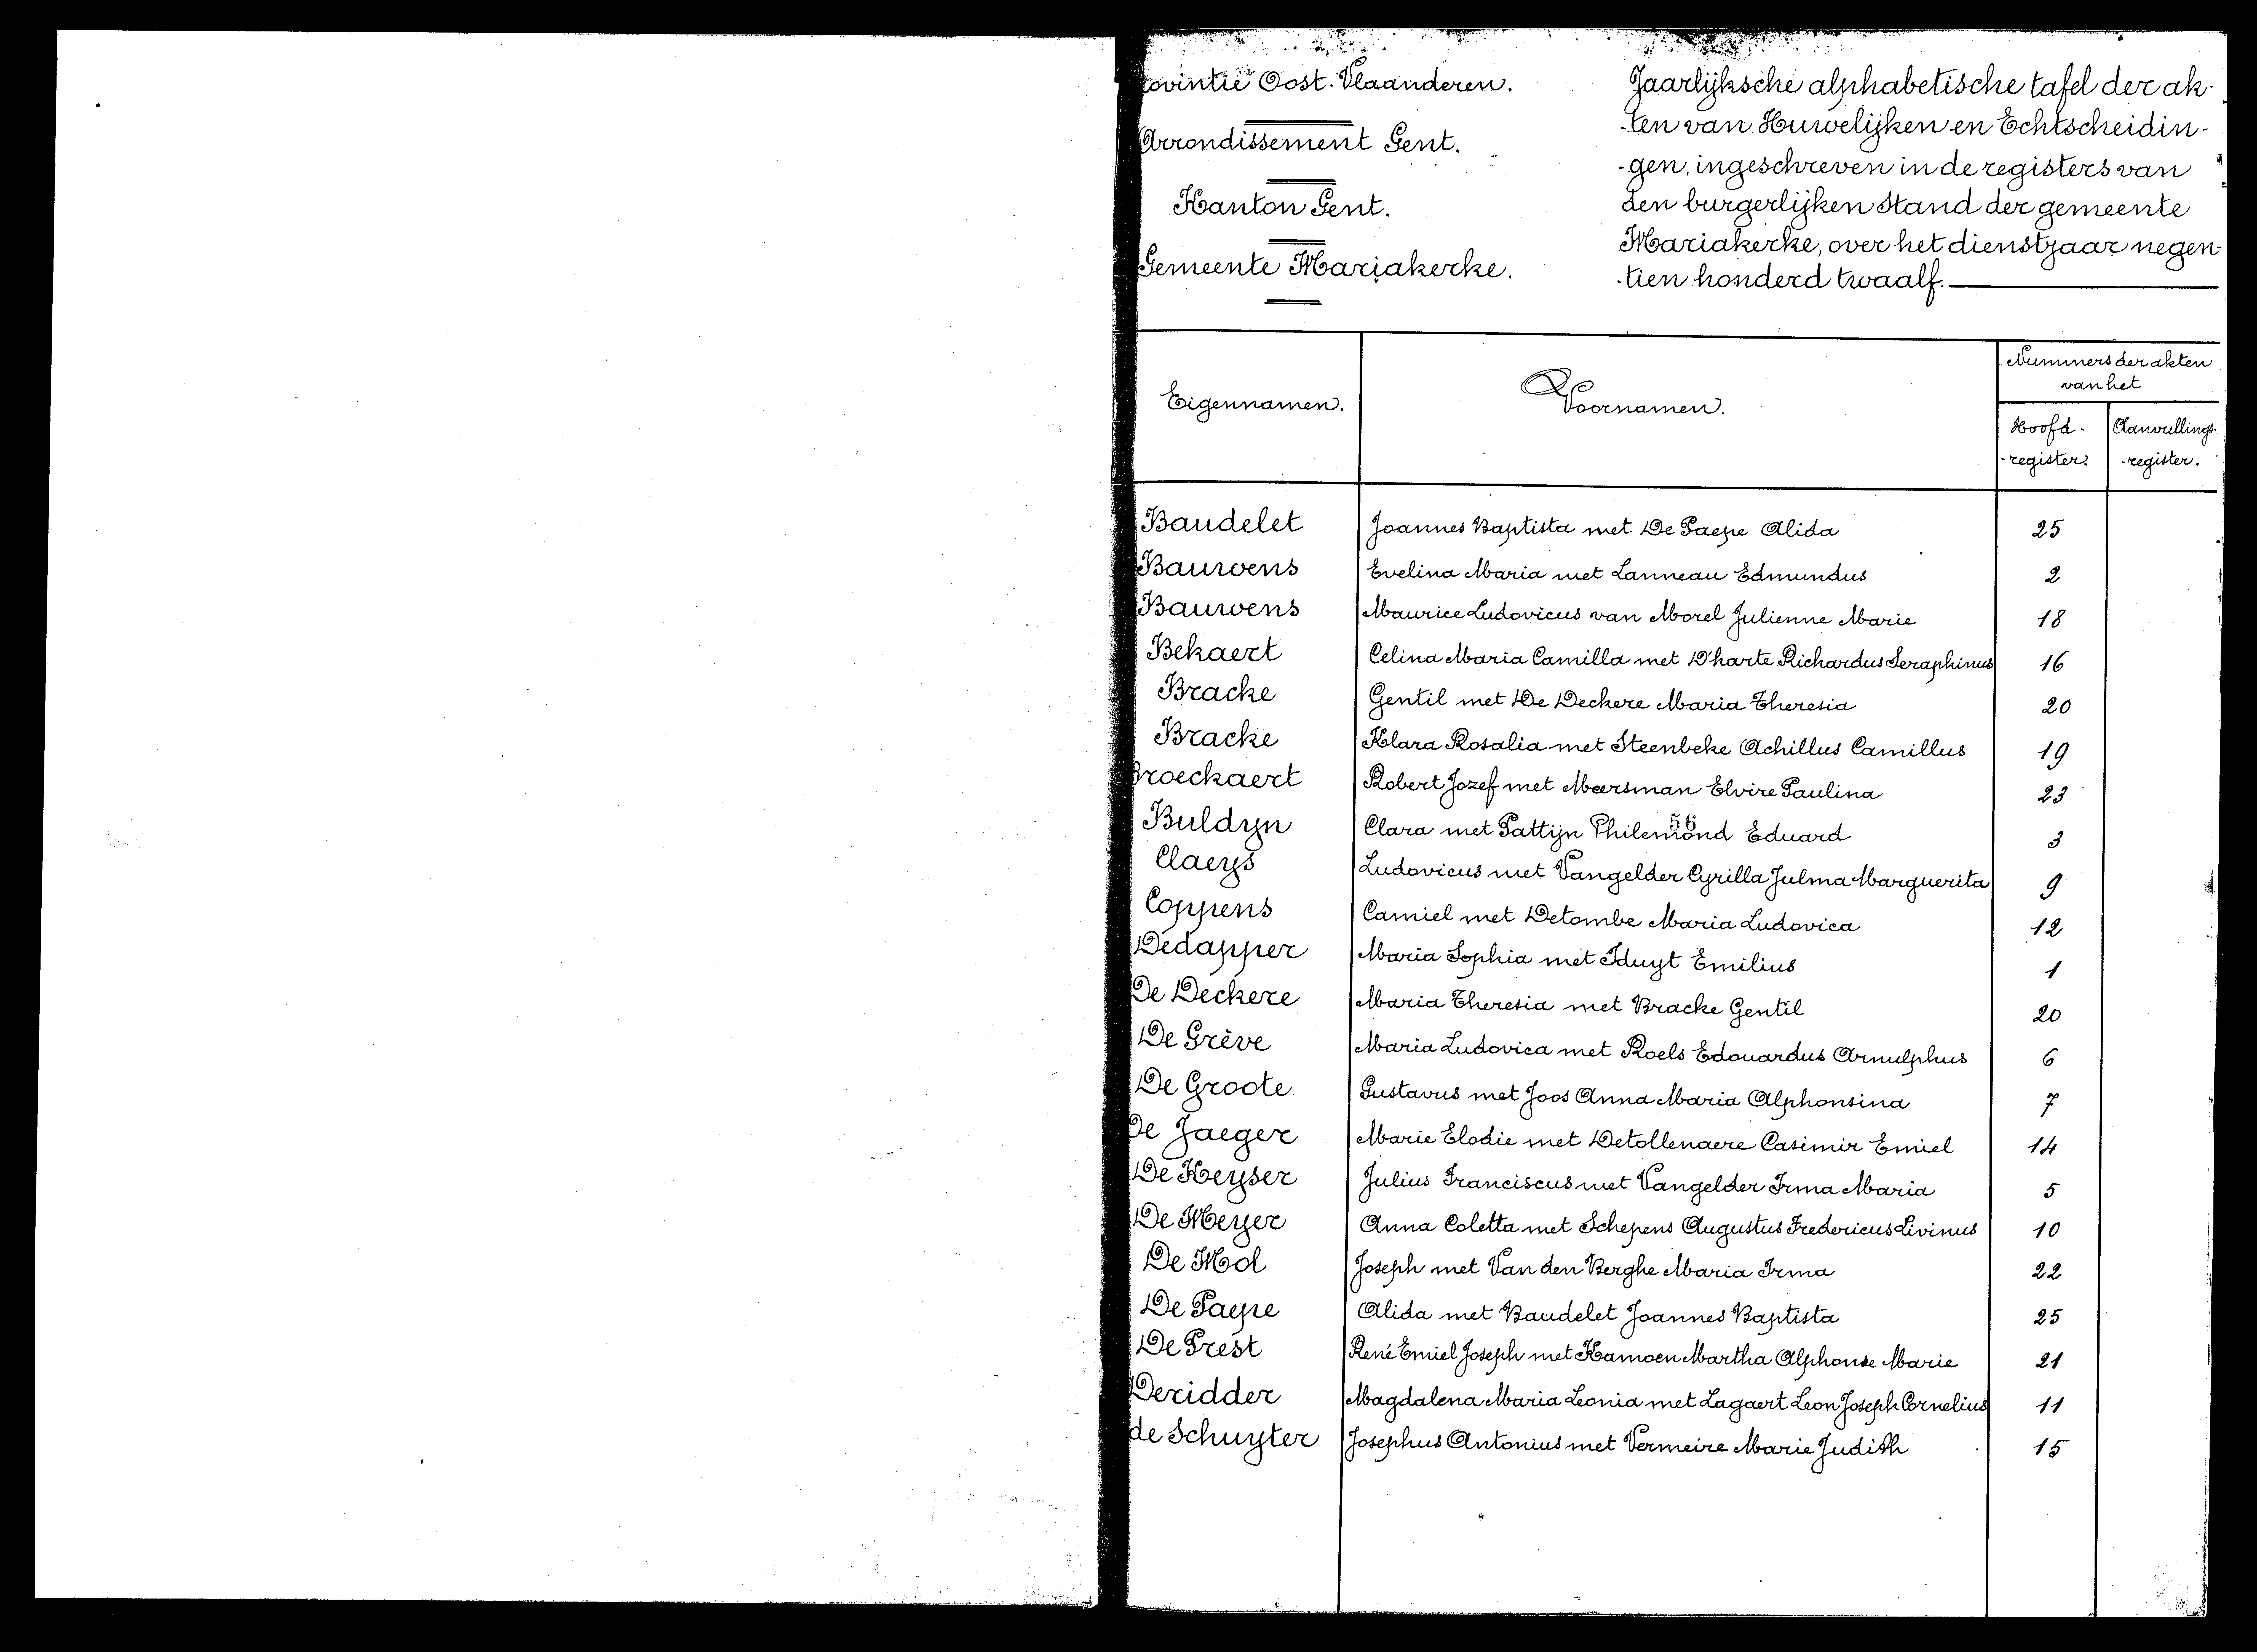 ovintie Oost-Vlaanderen.
Arrondissement Gent.
Kanton Gent.
Gemeente Mariakerke.
Jaarlijksche alphabetische tafel der ak-
-ten van Huwelijken en Echtscheidin-
-gen, ingeschreven in de registers van
den burgerlijken Stand der gemeente
Mariakerke, over het dienstjaar negen-
-tien honderd twaalf.
Eigennamen. Voornamen. Nummers der akten
van het
Hoofd- Aanvullings-
-register. -register.
Baudelet Joannes Baptista met De Paepe Alida 25
Bauwens Evelina Maria met Lanneau Edmundus 2
Bauwens Maurice Ludovicus van Morel Julienne Marie 18
Bekaert Celina Maria Camilla met D'harte Richardus Seraphinus 16
Bracke Gentil met De Deckere Maria Theresia 20
Bracke Klara Rosalia met Steenbeke Achillus Camillus 19
Broeckaert Robert Jozef met Meersman Elvire Paulina 23
56
Buldyn Clara met Pattijn Philemond Eduard 3
Claeys Ludovicus met Vangelder Cyrilla Julma Marguerita 9
Coppens Camiel met Detombe Maria Ludovica 12
Dedapper Maria Sophia met Huyt Emilius 1
De Deckere Maria Theresia met Bracke Gentil 20
De Grève Maria Ludovica met Roels Edouardus Arnulphus 6
De Groote Gustavus met Joos Anna Maria Alphonsina 7
De Jaeger Marie Elodie met Detollenaere Casimir Emiel 14
De Keyser Julius Franciscus met Vangelder Irma Maria 5
De Meyer Anna Coletta met Schepens Augustus Fredericus Livinus 10
De Mol Joseph met Van den Berghe Maria Irma 22
De Paepe Alida met Baudelet Joannes Baptista 25
De Prest René Emiel Joseph met Kamoen Martha Alphonse Marie 21
Deridder Magdalena Maria Leonia met Lagaert Leon Joseph Cornelius 11
de Schuyter Josephus Antonius met Vermeire Marie Judith 15